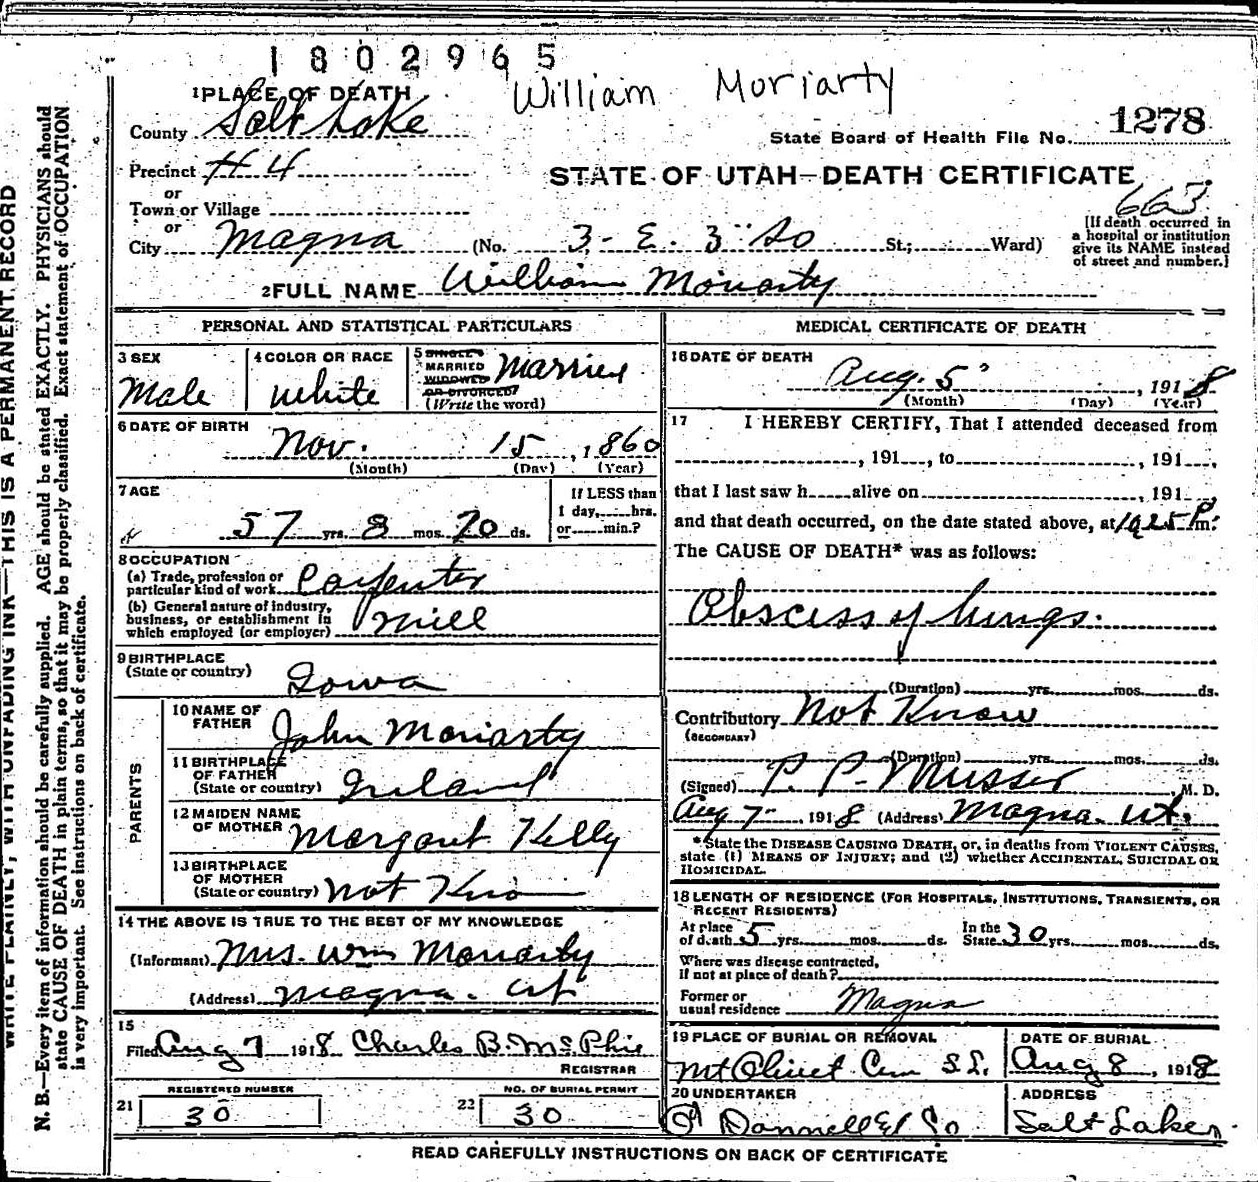 1802965
William Moriarty
1 PLACE OF DEATH
County Salt Lake
State Board of Health File No. 1278
Precinct #4
or
Town or Village
or
STATE OF UTAH—DEATH CERTIFICATE
663
City Magna (No. 3-E. 3rd So St.; Ward)
[If death occurred in
a hospital or institution
give its NAME instead
of street and number.]
2 FULL NAME William Moriarty
PERSONAL AND STATISTICAL PARTICULARS
3 SEX
Male
4 COLOR OR RACE
White
5 SINGLE
MARRIED
WIDOWED
OR DIVORCED
(Write the word)
Married
6 DATE OF BIRTH
Nov. 15, 1860
(Month) (Day) (Year)
7 AGE
57 yrs. 8 mos. 20 ds.
If LESS than
1 day, hrs.
or min.?
8 OCCUPATION
(a) Trade, profession or
particular kind of work Carpenter
(b) General nature of industry,
business, or establishment in
which employed (or employer) Mill
9 BIRTHPLACE
(State or country) Iowa
PARENTS
10 NAME OF
FATHER John Moriarty
11 BIRTHPLACE
OF FATHER
(State or country) Ireland
12 MAIDEN NAME
OF MOTHER Margaret Kelly
13 BIRTHPLACE
OF MOTHER
(State or country) Not Kno
14 THE ABOVE IS TRUE TO THE BEST OF MY KNOWLEDGE
(Informant) Mrs. Wm Moriarty
(Address) Magna. Ut
15
Filed Aug 7 1918 Charles B. McPhie
REGISTRAR
REGISTERED NUMBER
21 30
NO. OF BURIAL PERMIT
22 30
MEDICAL CERTIFICATE OF DEATH
16 DATE OF DEATH
Aug. 5, 1918
(Month) (Day) (Year)
17 I HEREBY CERTIFY, That I attended deceased from
, 191 , to , 191 ,
that I last saw h alive on , 191 ,
and that death occurred, on the date stated above, at 10 25 P m.
The CAUSE OF DEATH* was as follows:
Obscess of lungs.
(Duration) yrs. mos. ds.
Contributory Not Know
(SECONDARY)
(Duration) yrs. mos. ds.
(Signed) P. P. Musser, M. D.
Aug 7, 1918 (Address) Magna. Ut.
*State the DISEASE CAUSING DEATH, or, in deaths from VIOLENT CAUSES,
state (1) MEANS OF INJURY; and (2) whether ACCIDENTAL, SUICIDAL OR
HOMICIDAL.
18 LENGTH OF RESIDENCE (FOR HOSPITALS, INSTITUTIONS, TRANSIENTS, OR
RECENT RESIDENTS)
At place In the
of death 5 yrs. mos. ds. State 30 yrs. mos. ds.
Where was disease contracted,
if not at place of death?
Former or
usual residence Magna
19 PLACE OF BURIAL OR REMOVAL
Mt Olivet Cem S.L.
DATE OF BURIAL
Aug 8, 1918
20 UNDERTAKER
O'Donnell & Co
ADDRESS
Salt Lake
READ CAREFULLY INSTRUCTIONS ON BACK OF CERTIFICATE
WRITE PLAINLY, WITH UNFADING INK—THIS IS A PERMANENT RECORD
N. B.—Every item of information should be carefully supplied. AGE should be stated EXACTLY. PHYSICIANS should
state CAUSE OF DEATH in plain terms, so that it may be properly classified. Exact statement of OCCUPATION
is very important. See instructions on back of certificate.